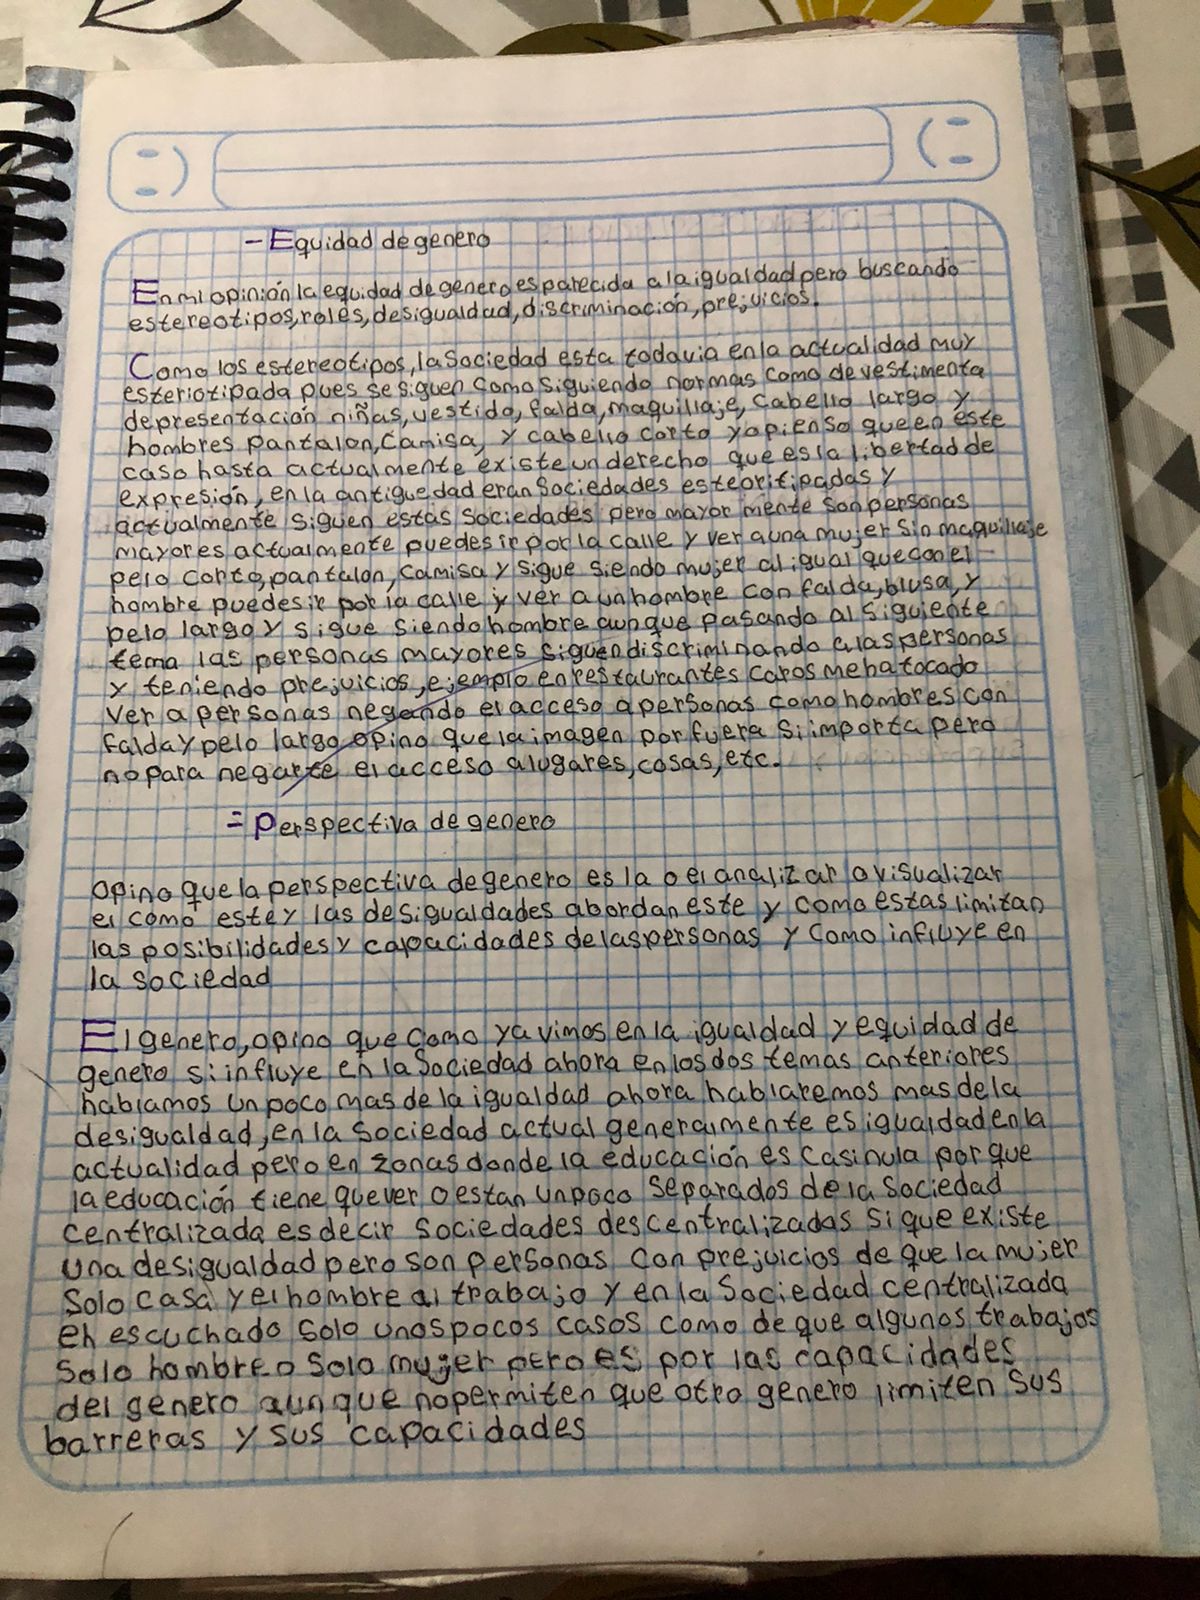 - Equidad de genero
En mi opinión la equidad de genero es parecida a la igualdad pero buscando
estereotipos, roles, desigualdad, discriminación, prejuicios.
Como los estereotipos, la sociedad esta todavia en la actualidad muy
esteriotipada pues se siguen como siguiendo normas como de vestimenta
de presentación niñas, vestido, falda, maquillaje, cabello largo y
hombres pantalon, camisa, y cabello corto yo pienso que en este
caso hasta actualmente existe un derecho que es la libertad de
expresión, en la antiguedad eran sociedades esteoritipadas y
actualmente siguen estas sociedades pero mayor mente son personas
mayores actualmente puedes ir por la calle y ver a una mujer sin maquillaje
pelo corto, pantalon, camisa y sigue siendo mujer al igual que con el
hombre puedes ir por la calle y ver a un hombre con falda, blusa, y
pelo largo y sigue siendo hombre aunque pasando al siguiente
tema las personas mayores siguen discriminando a las personas
y teniendo prejuicios, ejemplo en restaurantes caros me ha tocado
ver a personas negando el acceso a personas como hombres con
falda y pelo largo opino que la imagen por fuera si importa pero
no para negarte el acceso a lugares, cosas, etc.
= Perspectiva de genero
opino que la perspectiva de genero es la o el analizar o visualizar
el como este y las desigualdades abordan este y como estas limitan
las posibilidades y capacidades de las personas y como influye en
la sociedad
El genero, opino que como ya vimos en la igualdad y equidad de
genero si influye en la sociedad ahora en los dos temas anteriores
hablamos un poco mas de la igualdad ahora hablaremos mas de la
desigualdad, en la sociedad actual generalmente es igualdad en la
actualidad pero en zonas donde la educación es casi nula por que
la educación tiene que ver o estan un poco separados de la sociedad
centralizada es decir sociedades descentralizadas si que existe
una desigualdad pero son personas con prejuicios de que la mujer
solo casa y el hombre al trabajo y en la sociedad centralizada
eh escuchado solo unos pocos casos como de que algunos trabajos
solo hombre o solo mujer pero es por las capacidades
del genero aun que no permiten que otro genero limiten sus
barreras y sus capacidades